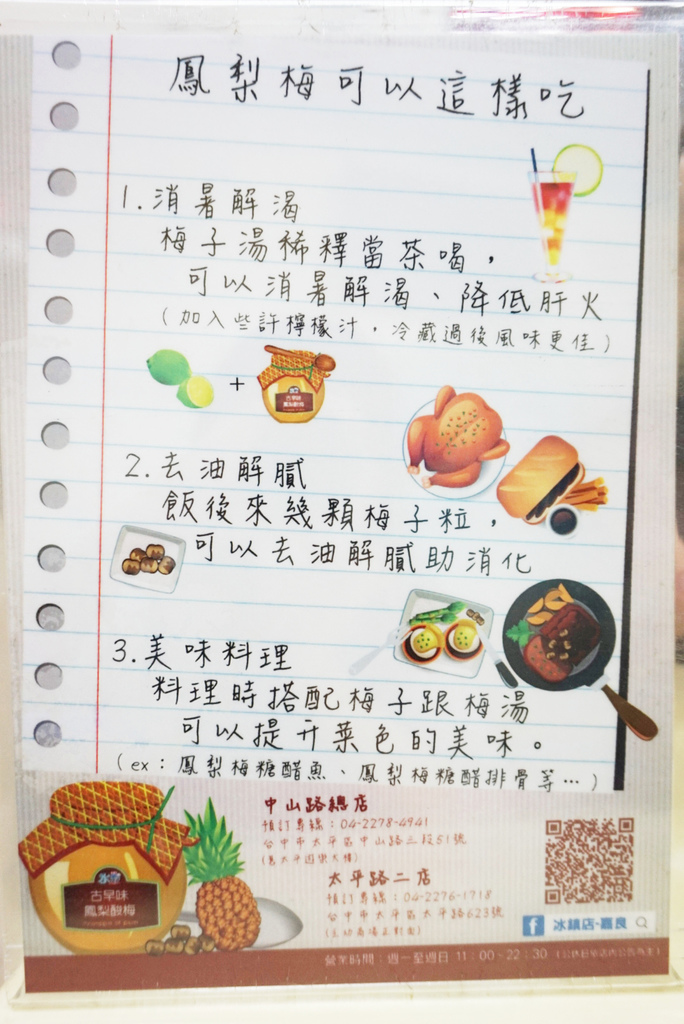 鳳梨梅可以這樣吃
1.消暑解渴
梅子湯稀釋當茶喝，
可以消暑解渴、降低肝火
(加入些許檸檬汁，冷藏過後風味更佳)
+
古早味
鳳梨酸梅
2.去油解膩
飯後來幾顆梅子粒，
可以去油解膩助消化
3.美味料理
料理時搭配梅子跟梅湯
可以提升菜色的美味。
(ex：鳳梨梅糖醋魚、鳳梨梅糖醋排骨等…)
中山路總店
預訂專線：04-2278-4941
台中市太平區中山路三段51號
太平路二店
預訂專線：04-2276-1718
台中市太平區太平路623號
古早味
鳳梨酸梅
f 冰鎮店-嘉良
營業時間：週一至週日 11：00~22：30 (公休日依店內公告為主)